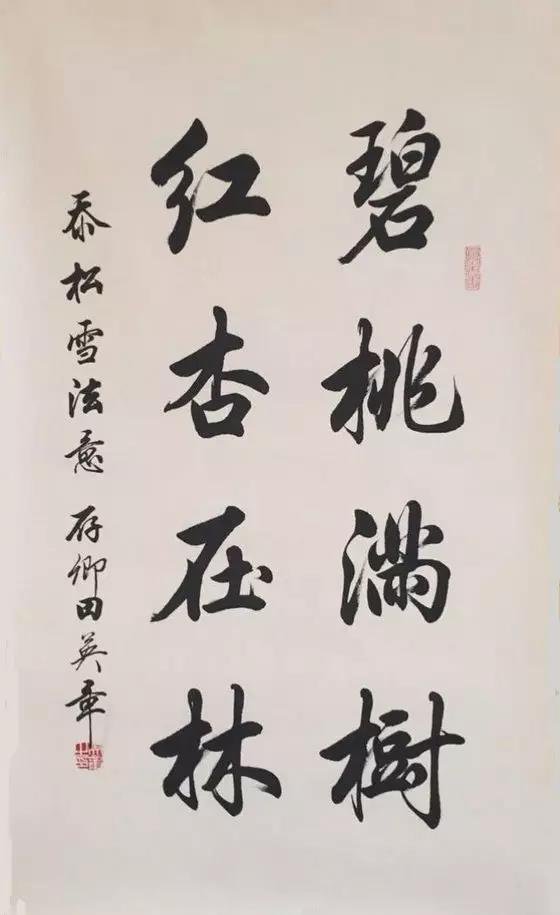 碧桃满樹
红杏在林
叅松雪法意 存卿田英章